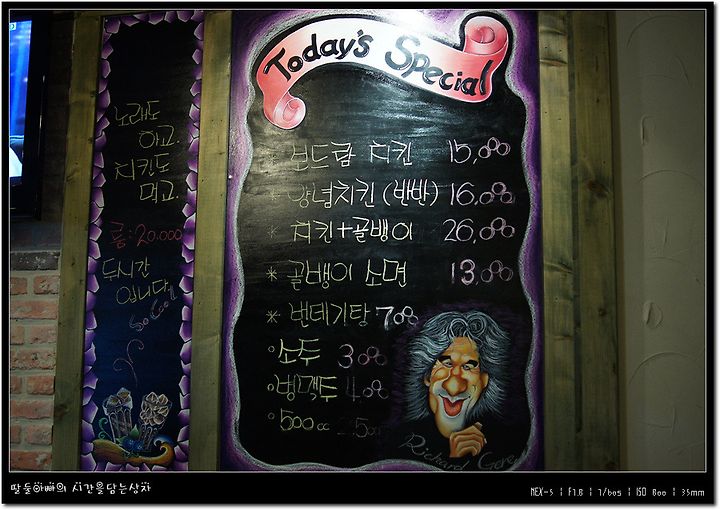 노래도
하고.
치킨도
먹고.
룸: 20.000
두시간
입니다.
So Cool
Today's Special
* 보드람 치킨 15,000
* 양념치킨 (반반) 16,000
* 치킨+골뱅이 26,000
* 골뱅이 소면 13,000
* 번데기탕 7000
소주 3000
병맥주 4000
500cc 2500
Richard Gere
딸둘아빠의 시간을담는상자
NEX-5 | F1.8 | 1/60s | ISO 800 | 35mm